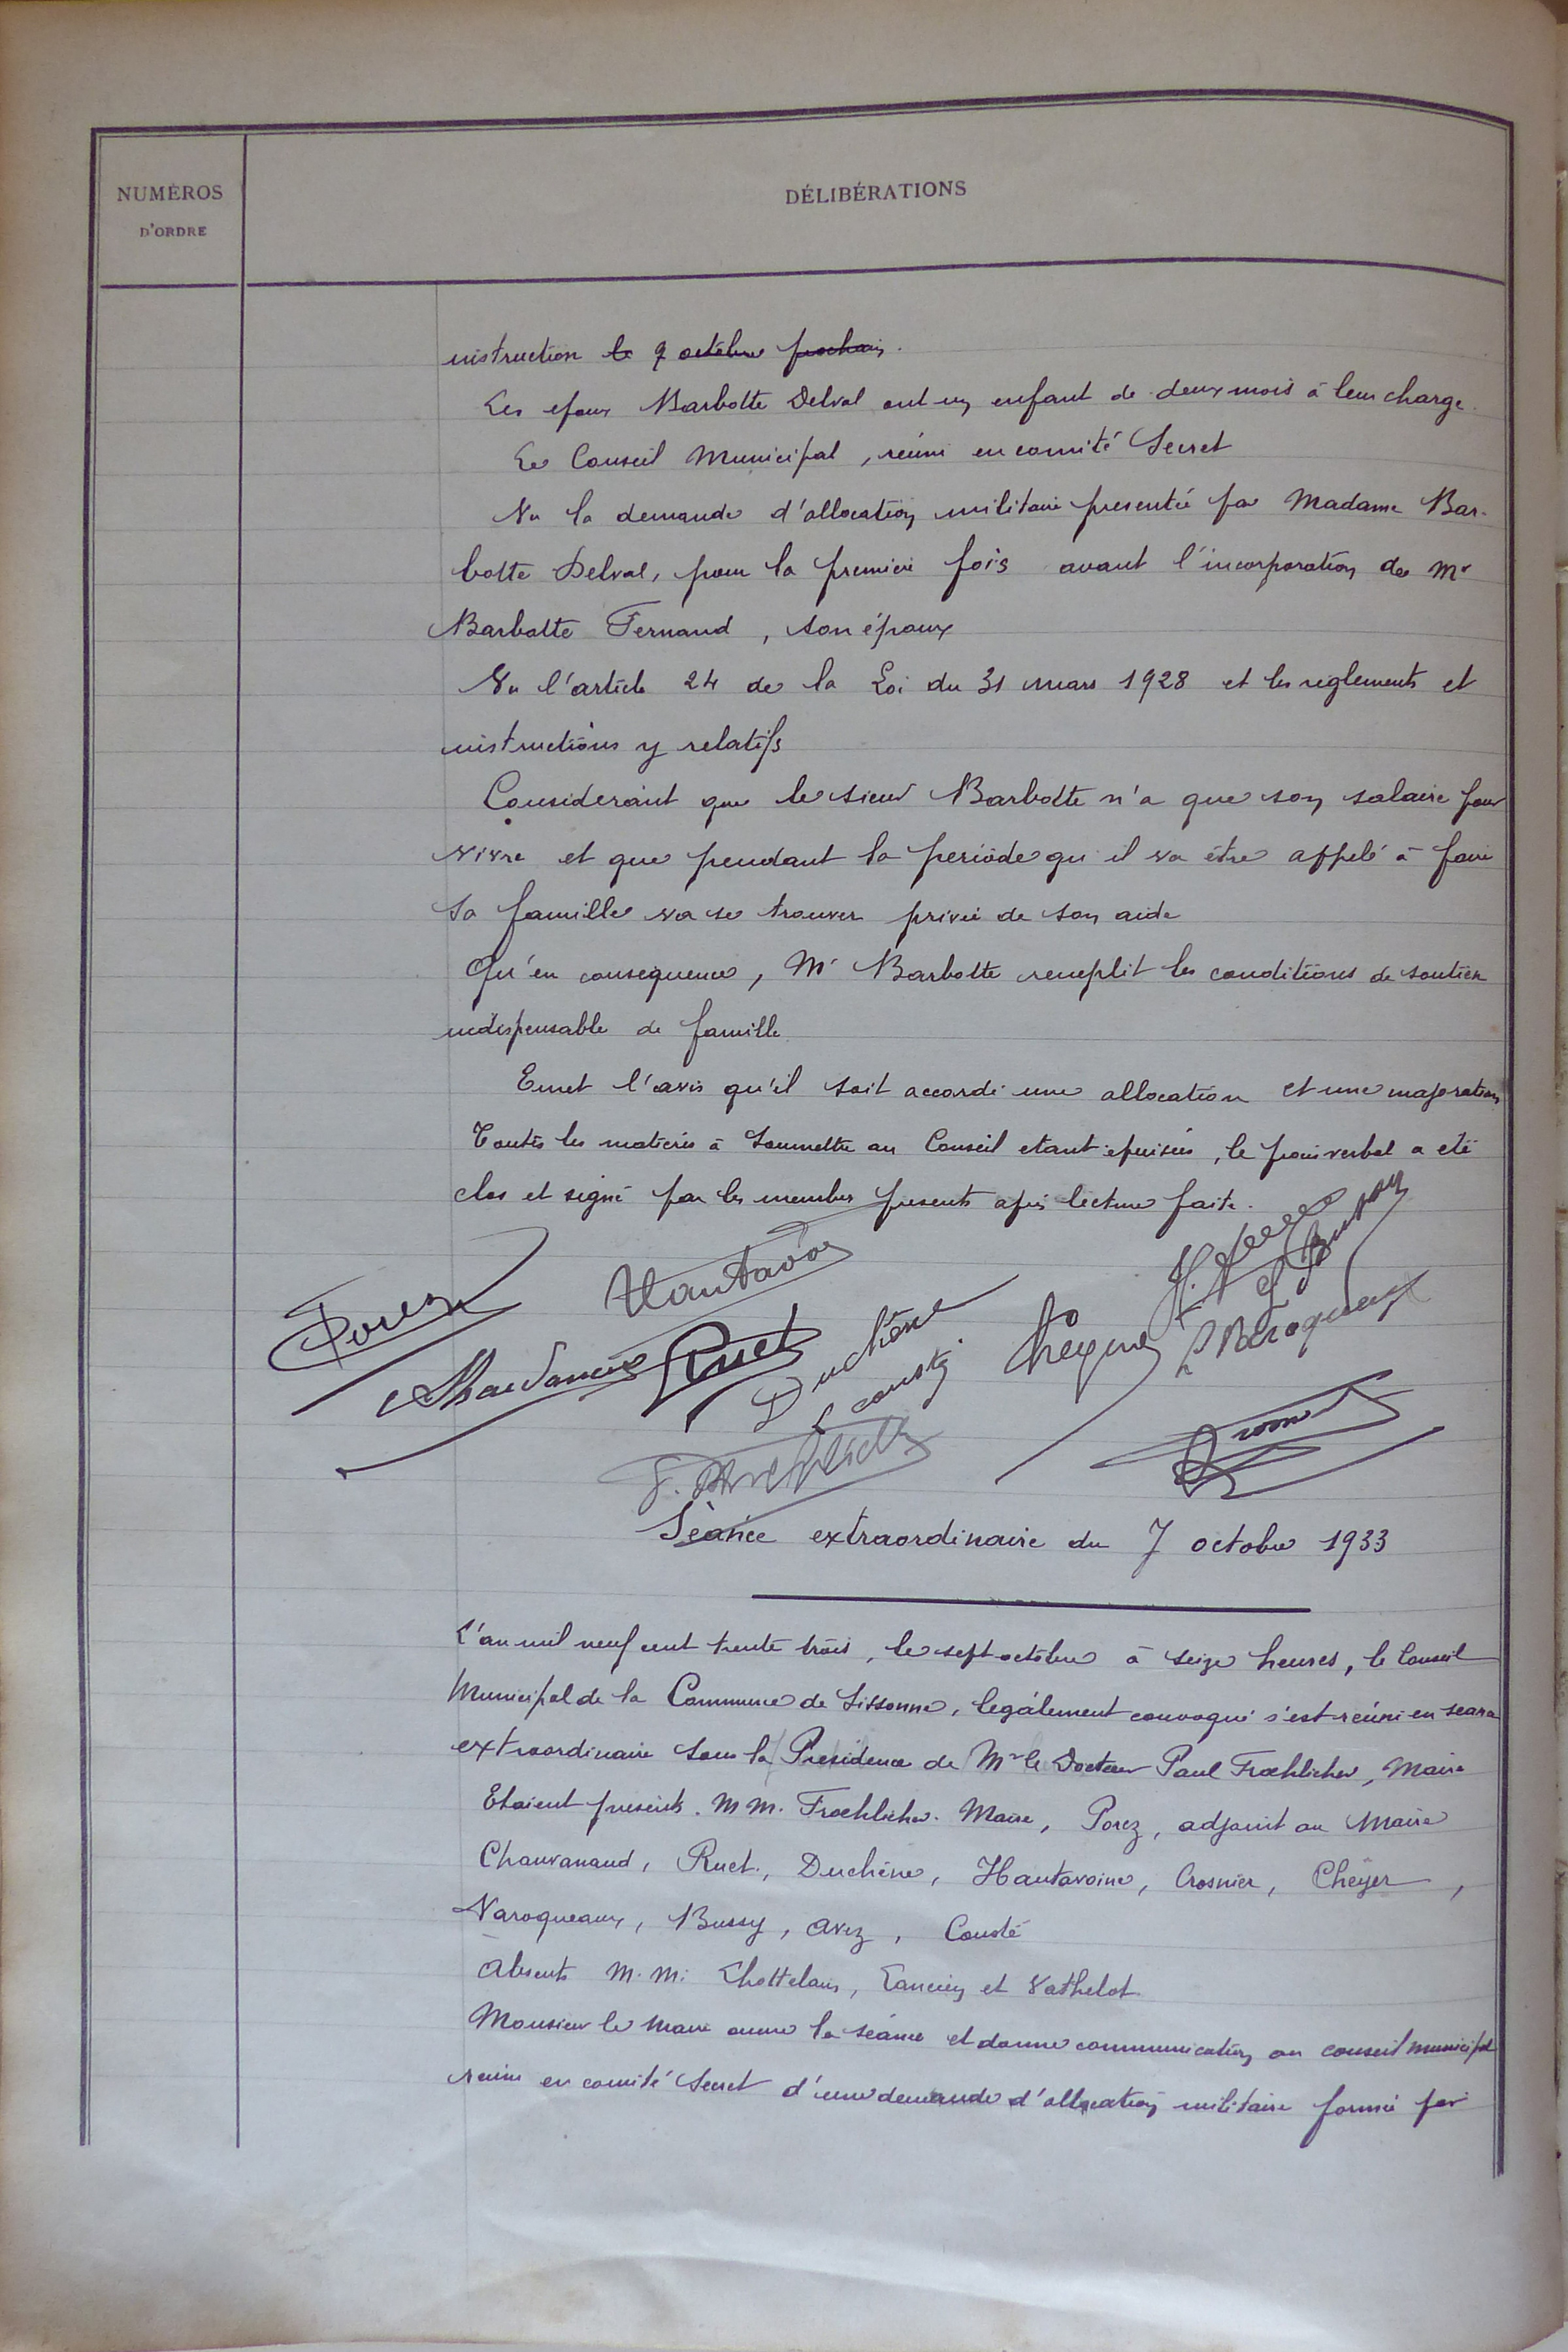 NUMÉROS
D'ORDRE
DÉLIBÉRATIONS
instruction le 9 octobre prochain.
Les epoux Barbotte Delval ont un enfant de deux mois à leur charge.
Le Conseil Municipal, réuni en comité Secret
Vu la demande d'allocation militaire presentée par Madame Bar-
botte Delval, pour la première fois avant l'incorporation de Mr
Barbotte Fernand, son époux
Vu l'article 24 de la Loi du 31 mars 1928 et les reglements et
instructions y relatifs
Considerant que le sieur Barbotte n'a que son salaire pour
vivre et que pendant la periode qu'il va être appelé à faire
sa famille va se trouver privée de son aide
Qu'en consequence, Mr Barbotte remplit les conditions de soutien
indispensable de famille
Emet l'avis qu'il soit accordé une allocation et une majoration
Toutes les matières à soumettre au Conseil etant épuisées, le procès verbal a eté
clos et signé par les membres presents après lecture faite.
Porez
Hautavoi
Ruet
Duchêne
Cousté
Cheyer
Séance extraordinaire du 7 octobre 1933
L'an mil neuf cent trente trois, le sept octobre à seize heures, le Conseil
Municipal de la Commune de Sissonne, legalement convoqué s'est réuni en seance
extraordinaire sous la Presidence de Mr le Docteur Paul Froehlicher, Maire
Etaient presents. M M. Froehlicher. Maire, Porez, adjoint au Maire
Chauvanaud, Ruet, Duchêne, Hautavoine, Crosnier, Cheyer,
Varoqueaux, Bussy, Avez, Cousté
Absents M. M. Lhottelain, Lancien et Vathelot.
Monsieur le Maire ouvre la séance et donne communication au conseil municipal
reuni en comité Secret d'une demande d'allocation militaire formée par